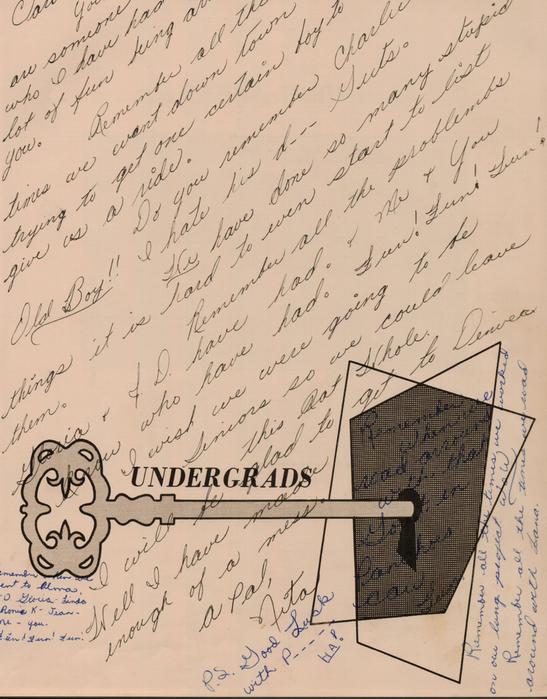 You
are someone
who I have had
lot of fun being
you. Remember all the
times we went down town
trying to get one certain boy to
give us a ride.
Old Boy!! Do you remember Charlie
I hate his d--- Guts.
We have done so many stupid
things it is hard to even start to list
them. Remember all the problembs
& D. have had. & Me & You
who have had. Fun! Fun! Fun!
I wish we were going to be
Seniors so we could leave
this Rat Whole.
I will be glad to get to Denver
Well I have made
enough of a mess.
a Pal,
Rita
P.S. Good Luck
with P----
HA!
UNDERGRADS
Remember
when we
road around
with that
in
car
Remember all the times we worked
on our lung project
Remember all the times we was
around with Lana.
Remember when we
went to Alma.
Gloria - Linda
Ronie K - Jean -
- you.
Fun! Fun! Fun!